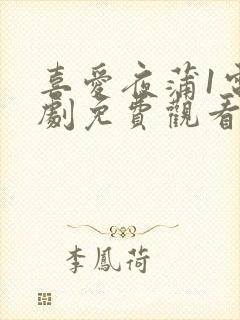 喜愛夜蒲1電
劇免費觀看
李鳳荷